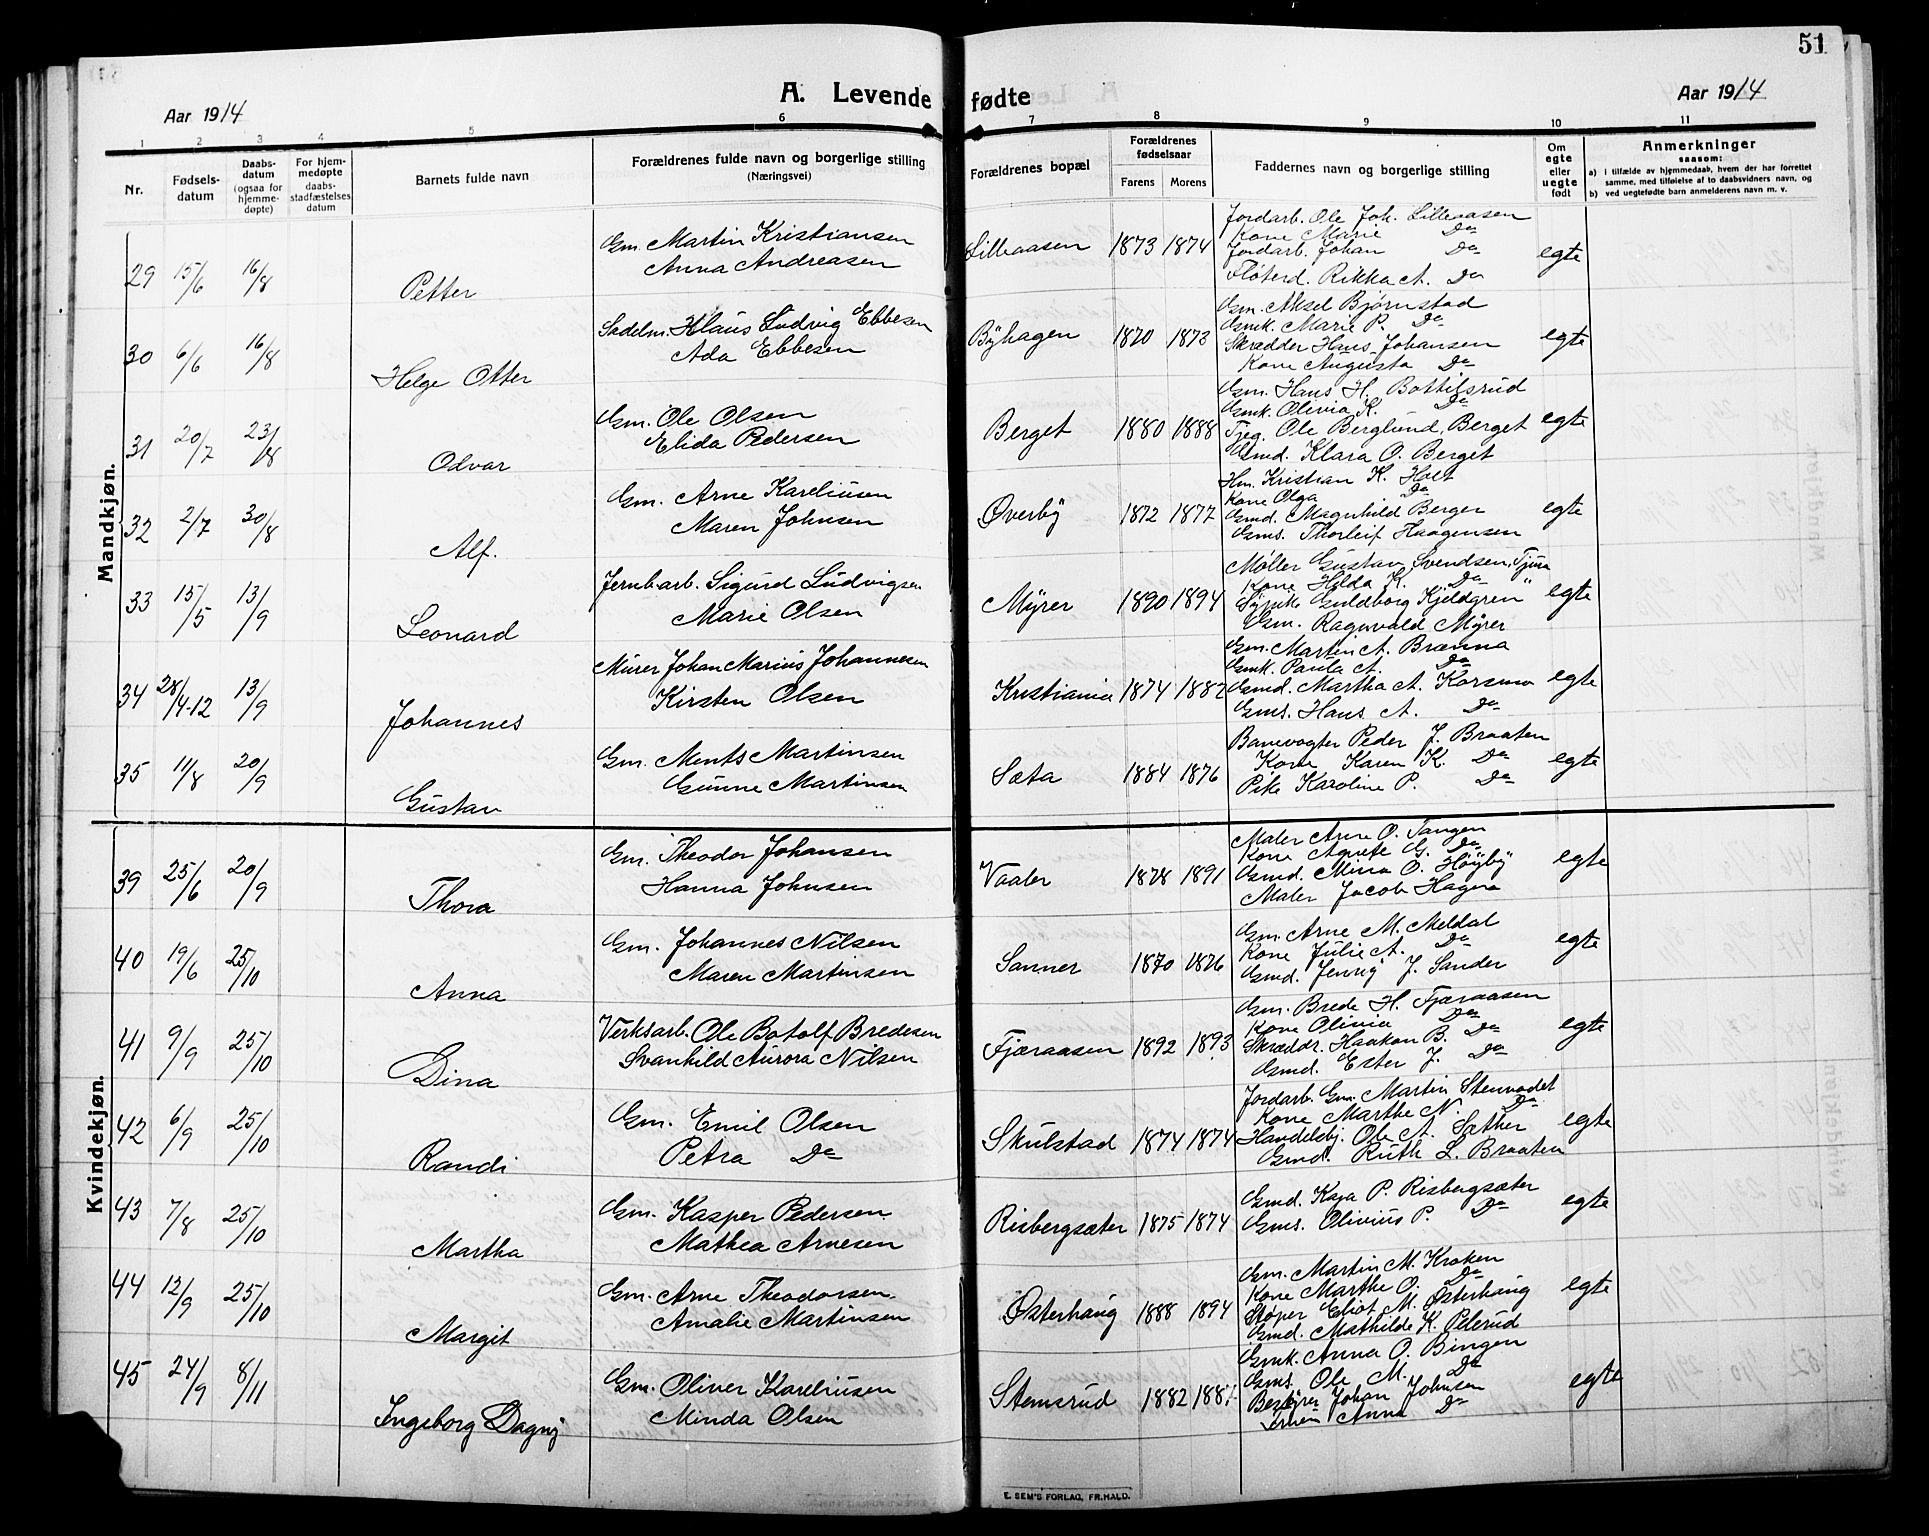 51
A. Levende fødte
Aar 1914
Aar 1914
1 2 3 4 5 6 7 8 9 10 11
Nr.
Fødsels-
datum
Daabs-
datum
(ogsaa for
hjemme-
døpte)
For hjem-
medøpte
daabs-
stadfæstelses
datum
Barnets fulde navn
Forældrenes fulde navn og borgerlige stilling
(Næringsvei)
Forældrenes bopæl
Forældrenes
fødselsaar
Farens Morens
Faddernes navn og borgerlige stilling
Om
egte
eller
uegte
født
Anmerkninger
saasom:
a) i tilfælde av hjemmedaab, hvem der har forrettet
samme, med tilføielse af to daabsvidners navn, og
b) ved uegtefødte barn anmelderens navn m. v.
Mandkjøn.
29 15/6 16/8 Petter
Gm. Martin Kristiansen
Anna Andreasen
Lilleaasen 1873 1874
Jordarb. Ole Joh. Lilleaasen
Kone Marie Do
Jordarb. Johan Do
Fløterd. Rikka A. Do
egte
30 6/6 16/8 Helge Otter
Sadelm. Klaus Ludvig Ebbesen
Ada Ebbesen
Byhagen 1870 1873
Gm. Aksel Bjørnstad
Gmk. Marie P. Do
Skrædder Hans Johansen
Kone Augusta Do
egte
31 20/7 23/8 Odvar
Gm. Ole Olsen
Elida Pedersen
Berget 1880 1888
Gm. Hans H. Bottilsrud
Gmk. Olivia K. Do
Tjeg. Ole Berglund, Berget
Gmd. Klara O. Berget
egte
32 2/7 30/8 Alf.
Gm. Arne Kareliusen
Maren Johnsen
Øverby 1872 1877
Hm. Kristian K. Holt
Kone Olga Do
Gmd. Magnhild Berger
Gms. Thorleif Haagensen
egte
33 15/5 13/9 Leonard
Jernb.arb. Sigurd Ludvigsen
Marie Olsen
Myrer 1890 1894
Møller Gustav Svendsen, Tjura
Kone Hilda K. Do "
Sypike Guldborg Kjeldgren
Gm. Ragnvald Myrer
egte
34 28/4-12 13/9 Johannes
Murer Johan Marius Johannesen
Kirsten Olsen
Kristiania 1874 1882
Gm. Martin A. Brænna
Gmk. Paula A. Do
Gmd. Martha A. Korsmo
Gms. Hans A. Do
egte
35 11/8 20/9 Gustav
Gm. Ments Martinsen
Gunne Martinsen
Sæta 1884 1876
Banevogter Peder J. Braaten
Kone Karen K. Do
Pike Karoline P. Do
egte
Kvindekjøn.
39 25/6 20/9 Thora
Gm. Theodor Johansen
Hanna Johnsen
Vaaler 1878 1891
Maler Arne O. Tangen
Kone Agnete G. Do
Gmd. Mina O. Høyby
Maler Jacob Hagen
egte
40 19/6 25/10 Anna
Gm. Johannes Nilsen
Maren Martinsen
Sanner 1870 1876
Gm. Arne M. Meldal
Kone Julie A. Do
Gmd. Jenny J. Sander
egte
41 9/9 25/10 Dina
Verksarb. Ole Botolf Bredesen
Svanhild Aurora Nilsen
Fjæraasen 1892 1893
Gm. Brede H. Fjæraasen
Kone Olivia Do
Skræddr. Haakon B. Do
Gmd. Ester J. Do
egte
42 6/9 25/10 Randi
Gm. Emil Olsen
Petra Do
Skulstad 1874 1874
Jordarb. Gm. Martin Stenvadet
Kone Marthe N. Do
Handelsbj. Ole A. Sæther
Gmd. Ruth L. Braaten
egte
43 7/8 25/10 Martha
Gm. Kasper Pedersen
Mathea Arnesen
Risbergsæter 1875 1874
Gmd. Kaja P. Risbergsæter
Gms. Olivius P. Do
egte
44 12/9 25/10 Margit
Gm. Arne Theodorsen
Amalie Martinsen
Østerhaug 1888 1894
Gm. Martin M. Kroken
Kone Marthe O. Do
Støper Eliot M. Østerhaug
Gmd. Mathilde K. Pelerud
egte
45 24/9 8/11 Ingeborg Dagny
Gm. Oliver Kareliusen
Minda Olsen
Stemsrud 1882
Gmk. Anna O. Bingen
Gms. Ole M. Do
Bestyrer Johan Johnsen
Fruen Anna Do
egte
E. SEM'S FORLAG, FR.HALD.